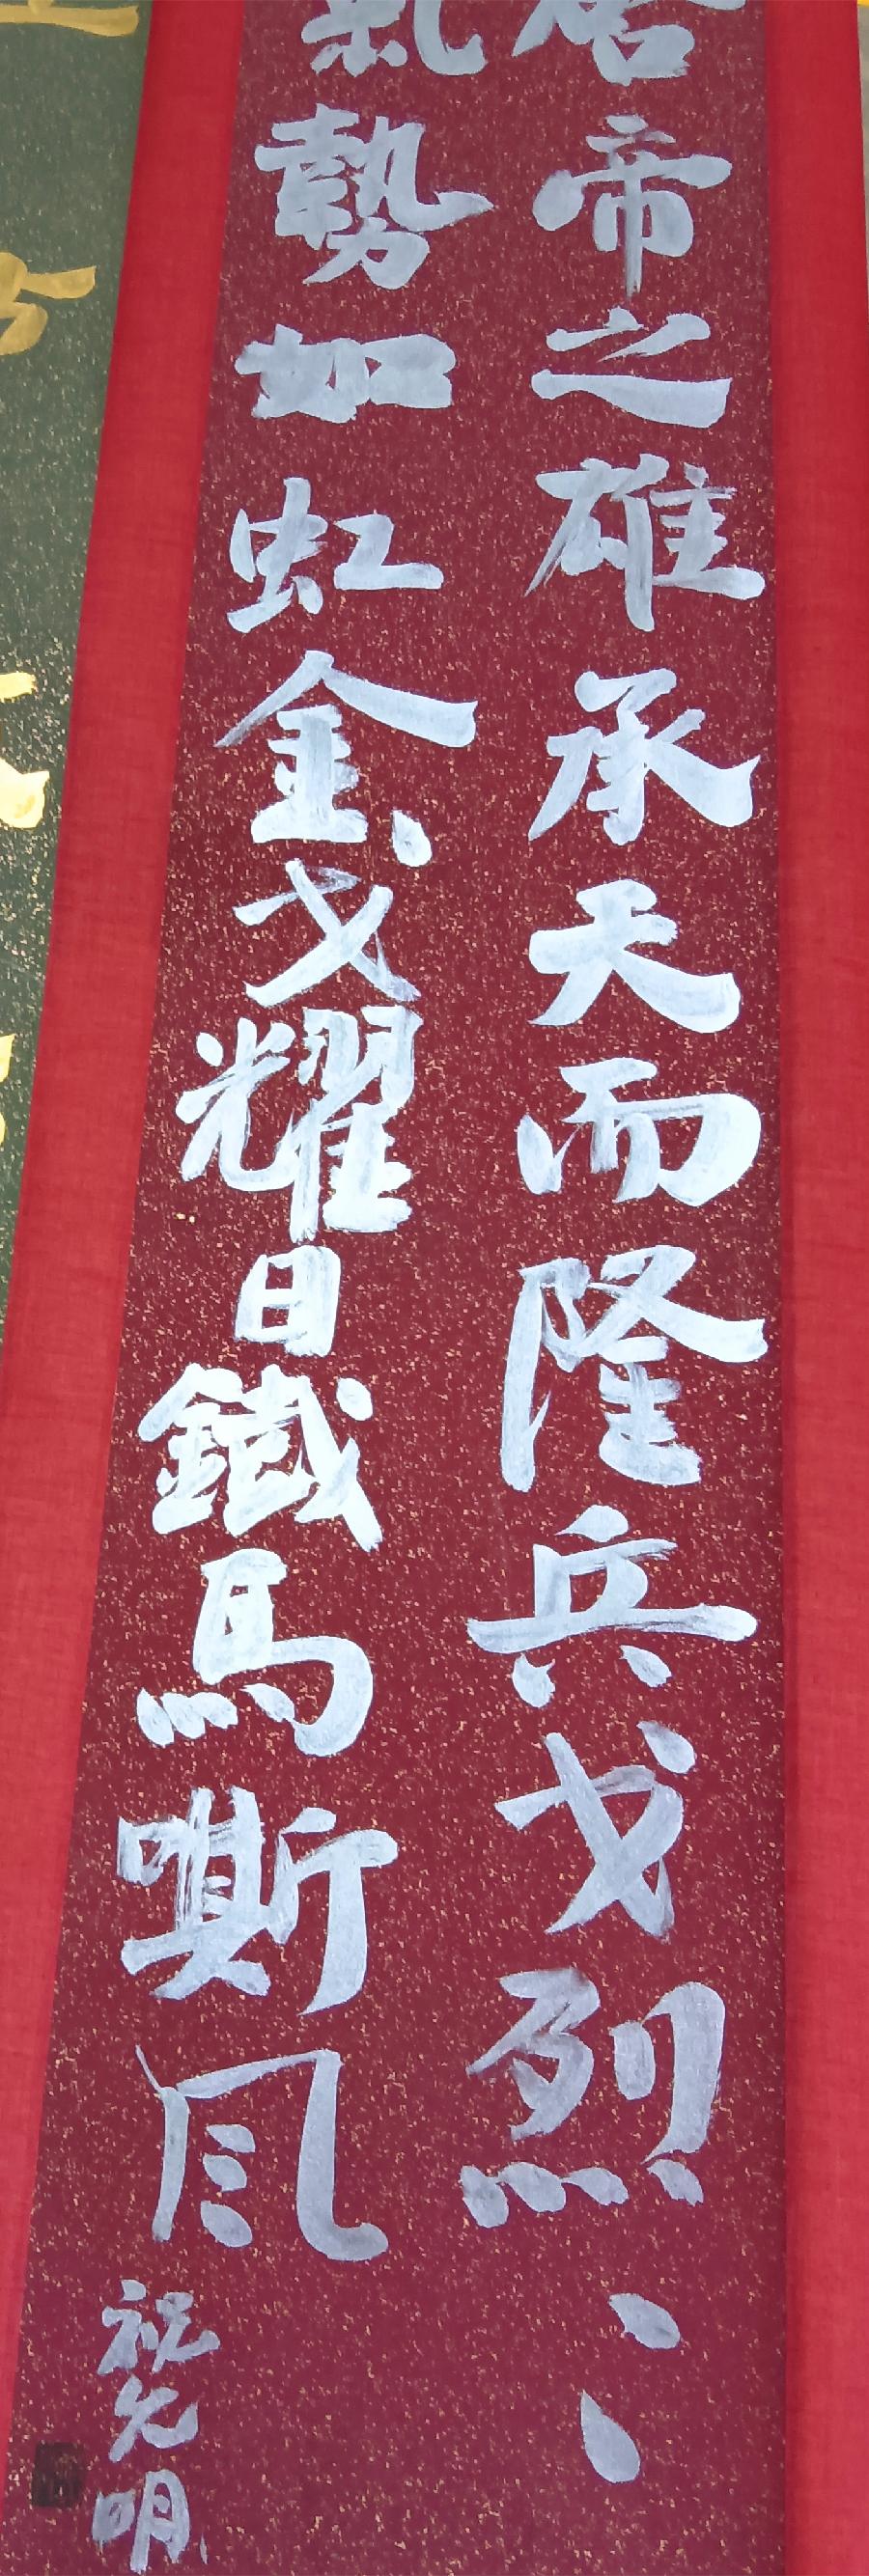 帝之雄承天而隆兵戈烈、、
氣勢如虹金戈耀日鐵馬嘶風
祝允明